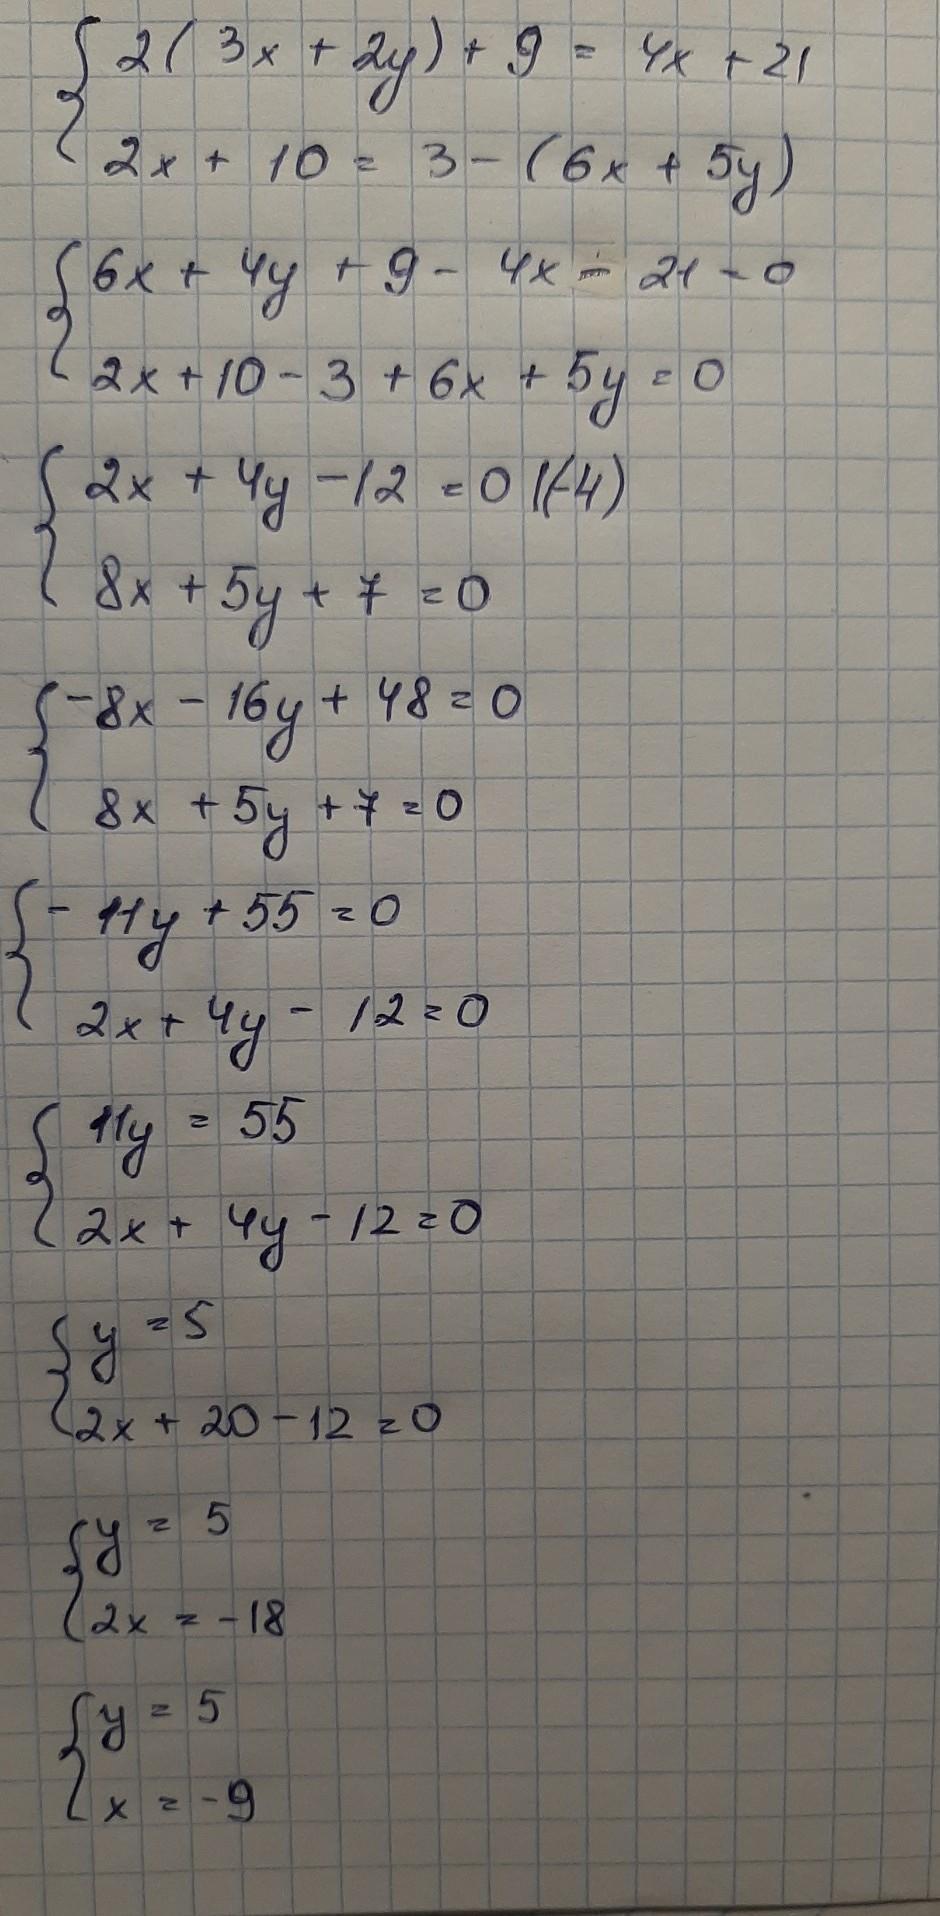 2(3x + 2y) + 9 = 4x + 21
2x + 10 = 3 - (6x + 5y)
6x + 4y + 9 - 4x - 21 - 0
2x + 10 - 3 + 6x + 5y = 0
2x + 4y - 12 = 0 |(-4)
8x + 5y + 7 = 0
-8x - 16y + 48 = 0
8x + 5y + 7 = 0
- 11y + 55 = 0
2x + 4y - 12 = 0
11y = 55
2x + 4y - 12 = 0
y = 5
2x + 20 - 12 = 0
y = 5
2x = -18
y = 5
x = -9